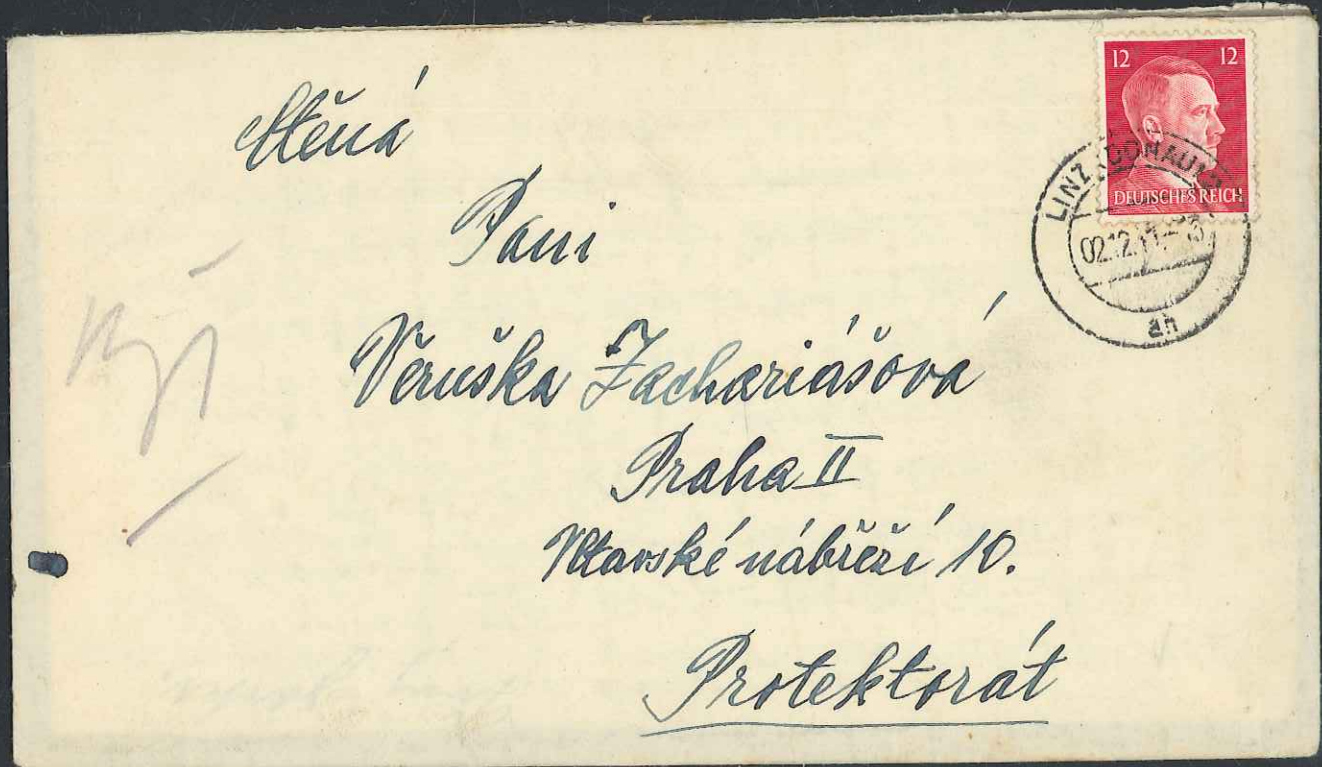 12 12
DEUTSCHES REICH
LINZ (DONAU)
02.12.
an
Ctěná
Paní
Věruška Zachariášová
Praha II
Vltavské nábřeží 10.
Protektorát